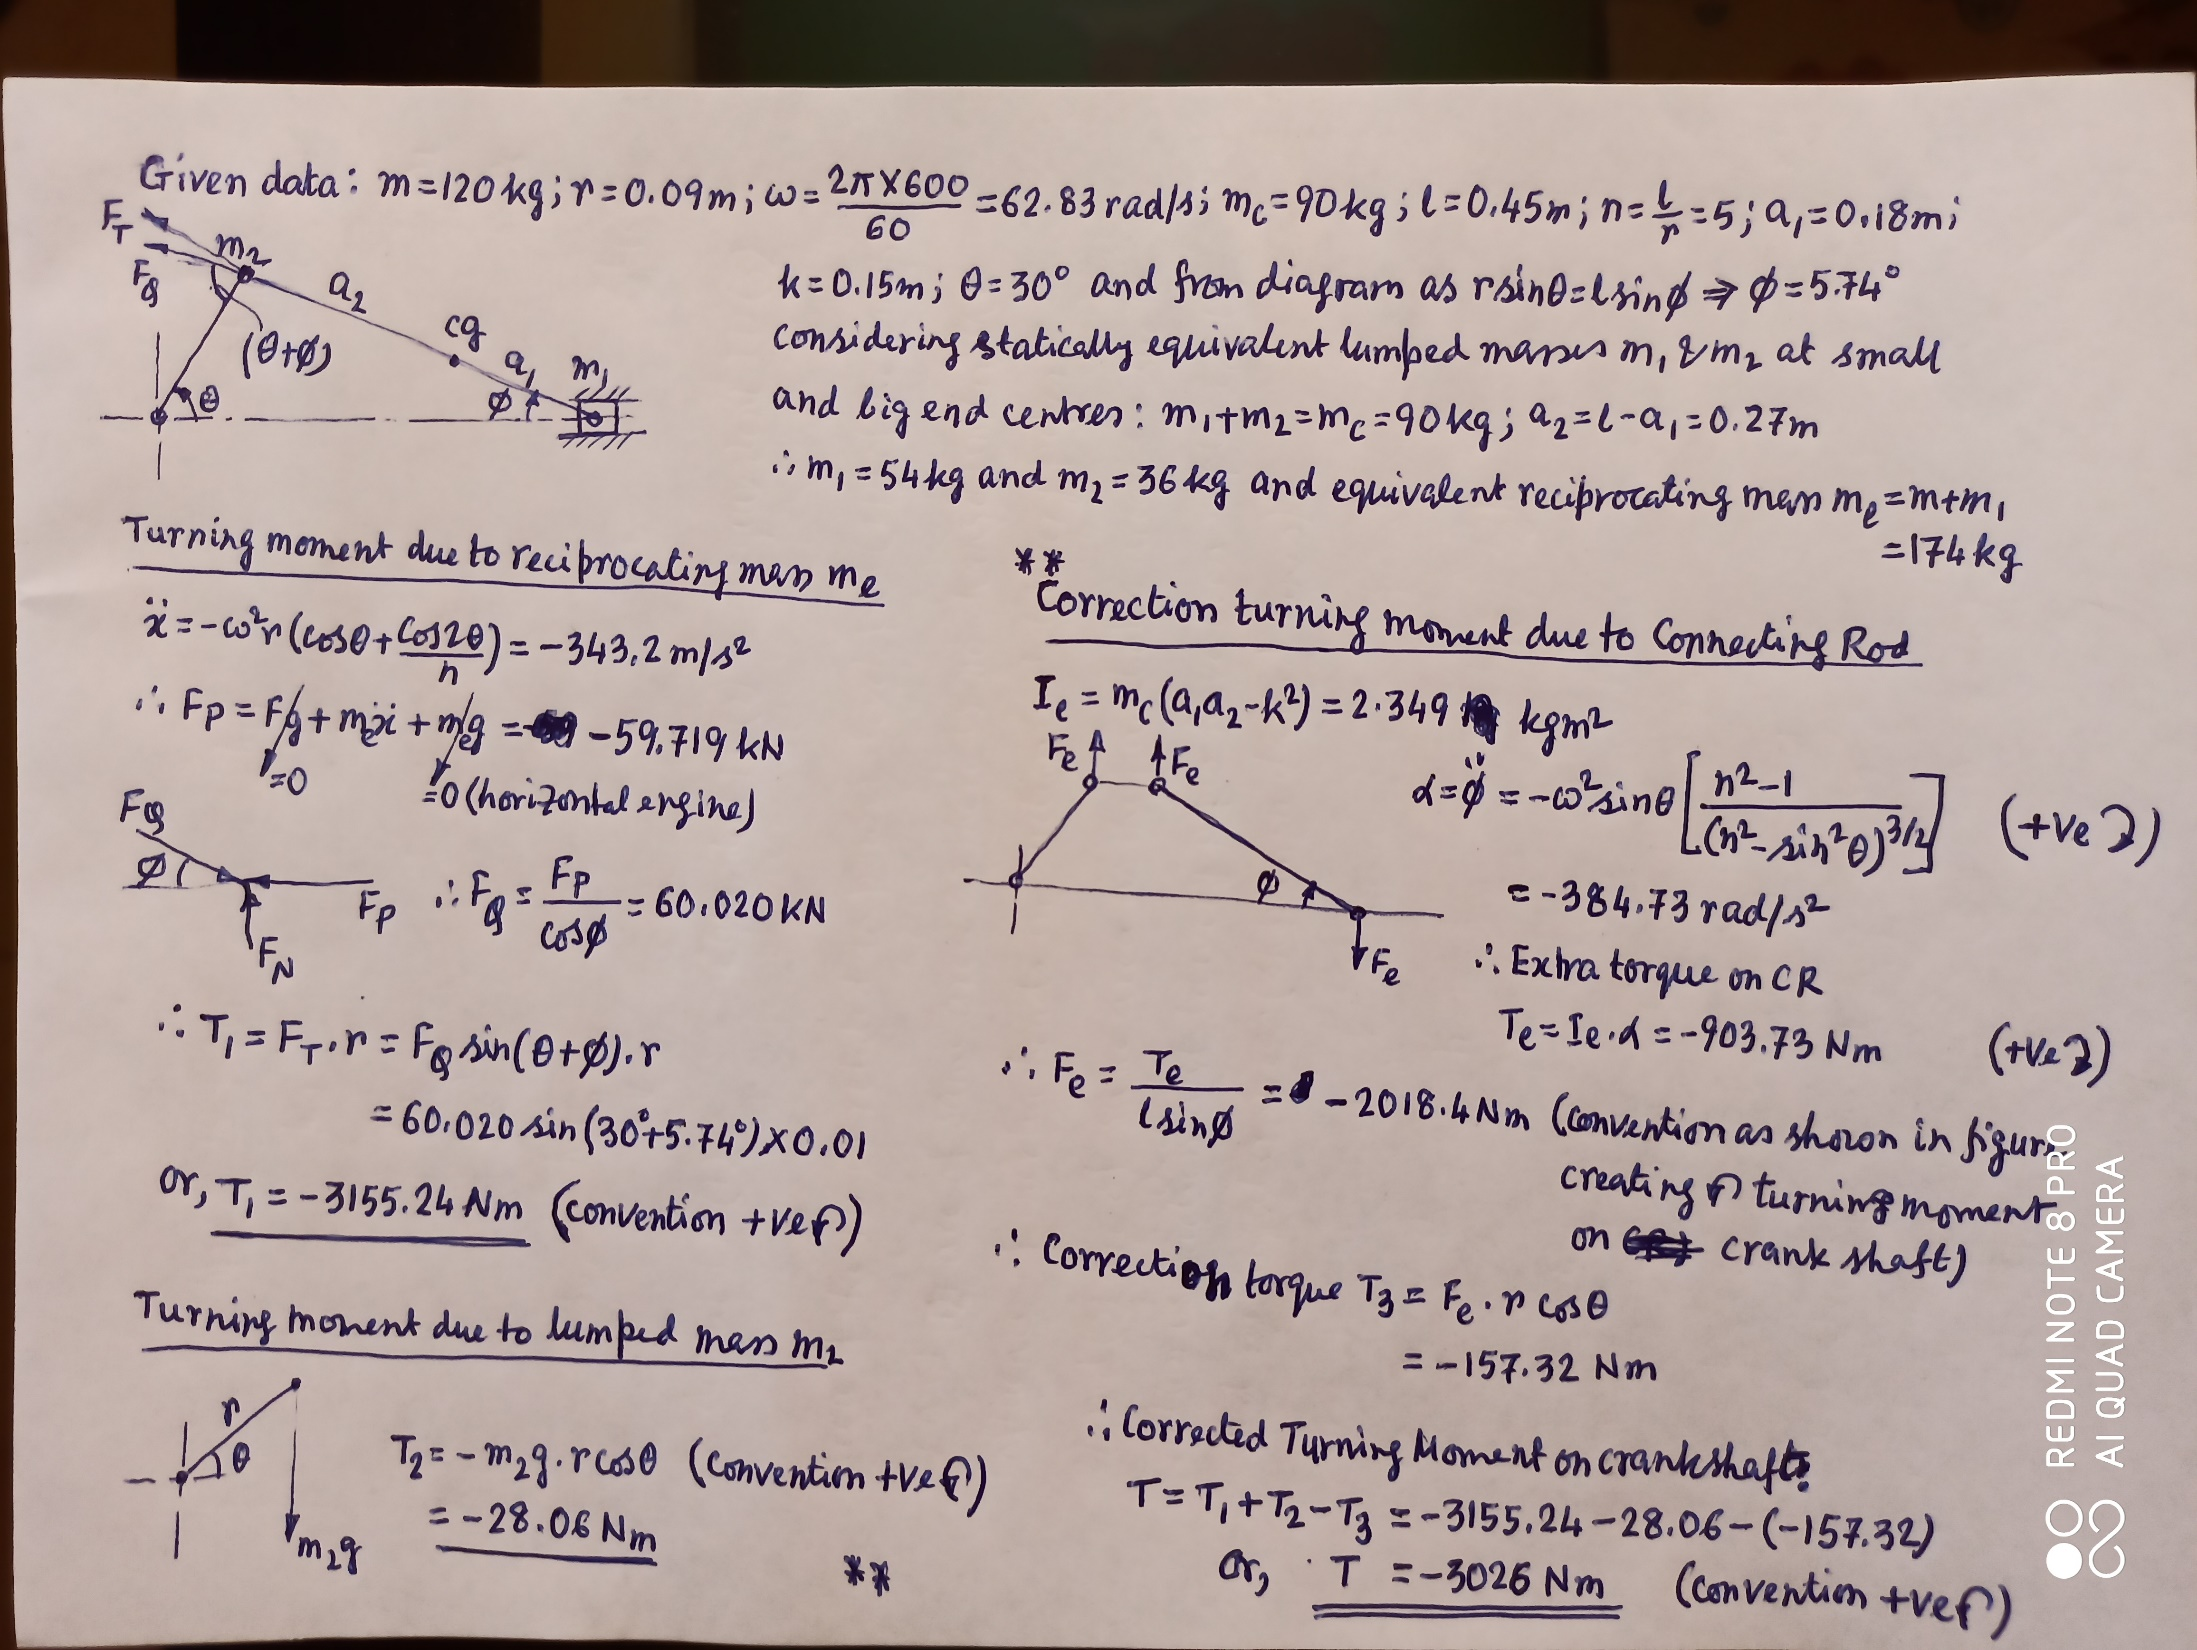 Given data: m=120kg; r=0.09m; ω=2π×600/60=62.83rad/s; m_c=90kg; l=0.45m; n=l/r=5; a₁=0.18m;
k=0.15m; θ=30° and from diagram as rsinθ=lsinφ ⇒ φ=5.74°
Considering statically equivalent lumped masses m₁ & m₂ at small
and big end centres: m₁+m₂=m_c=90kg; a₂=l-a₁=0.27m
∴ m₁=54kg and m₂=36kg and equivalent reciprocating mass m_e=m+m₁
=174kg
F_T
F_Q
m₂
a₂
cg
a₁
m₁
(θ+φ)
θ
φ
Turning moment due to reciprocating mass m_e
ẍ=-ω²r(cosθ+cos2θ/n)=-343.2m/s²
∴ F_P=F_g+m_eẍ+m_eg=-59.719kN
=0
=0(horizontal engine)
F_Q
φ
F_P
F_N
∴ F_Q=F_P/cosφ=60.020KN
∴ T₁=F_T.r=F_Q sin(θ+φ).r
=60.020sin(30°+5.74°)×0.01
or, T₁=-3155.24Nm (convention +ve↶)
Turning moment due to lumped mass m₂
r
θ
m₂g
T₂=-m₂g.rcosθ (convention +ve↶)
=-28.06Nm
**
**
Correction turning moment due to Connecting Rod
I_e=m_c(a₁a₂-k²)=2.349 kgm²
F_e
F_e
φ
F_e
α=φ̈=-ω²sinθ[n²-1/(n²-sin²θ)^3/2] (+ve↷)
=-384.73rad/s²
∴ Extra torque on CR
T_e=I_e.α=-903.73Nm (+ve↷)
∴ F_e=T_e/lsinφ=-2018.4Nm (convention as shown in figure
creating ↶ turning moment
on crank shaft)
∴ Correction torque T₃=F_e.r cosθ
=-157.32 Nm
∴ Corrected Turning Moment on crankshaft:
T=T₁+T₂-T₃=-3155.24-28.06-(-157.32)
or, T=-3026Nm (convention +ve↶)
REDMI NOTE 8 PRO
AI QUAD CAMERA